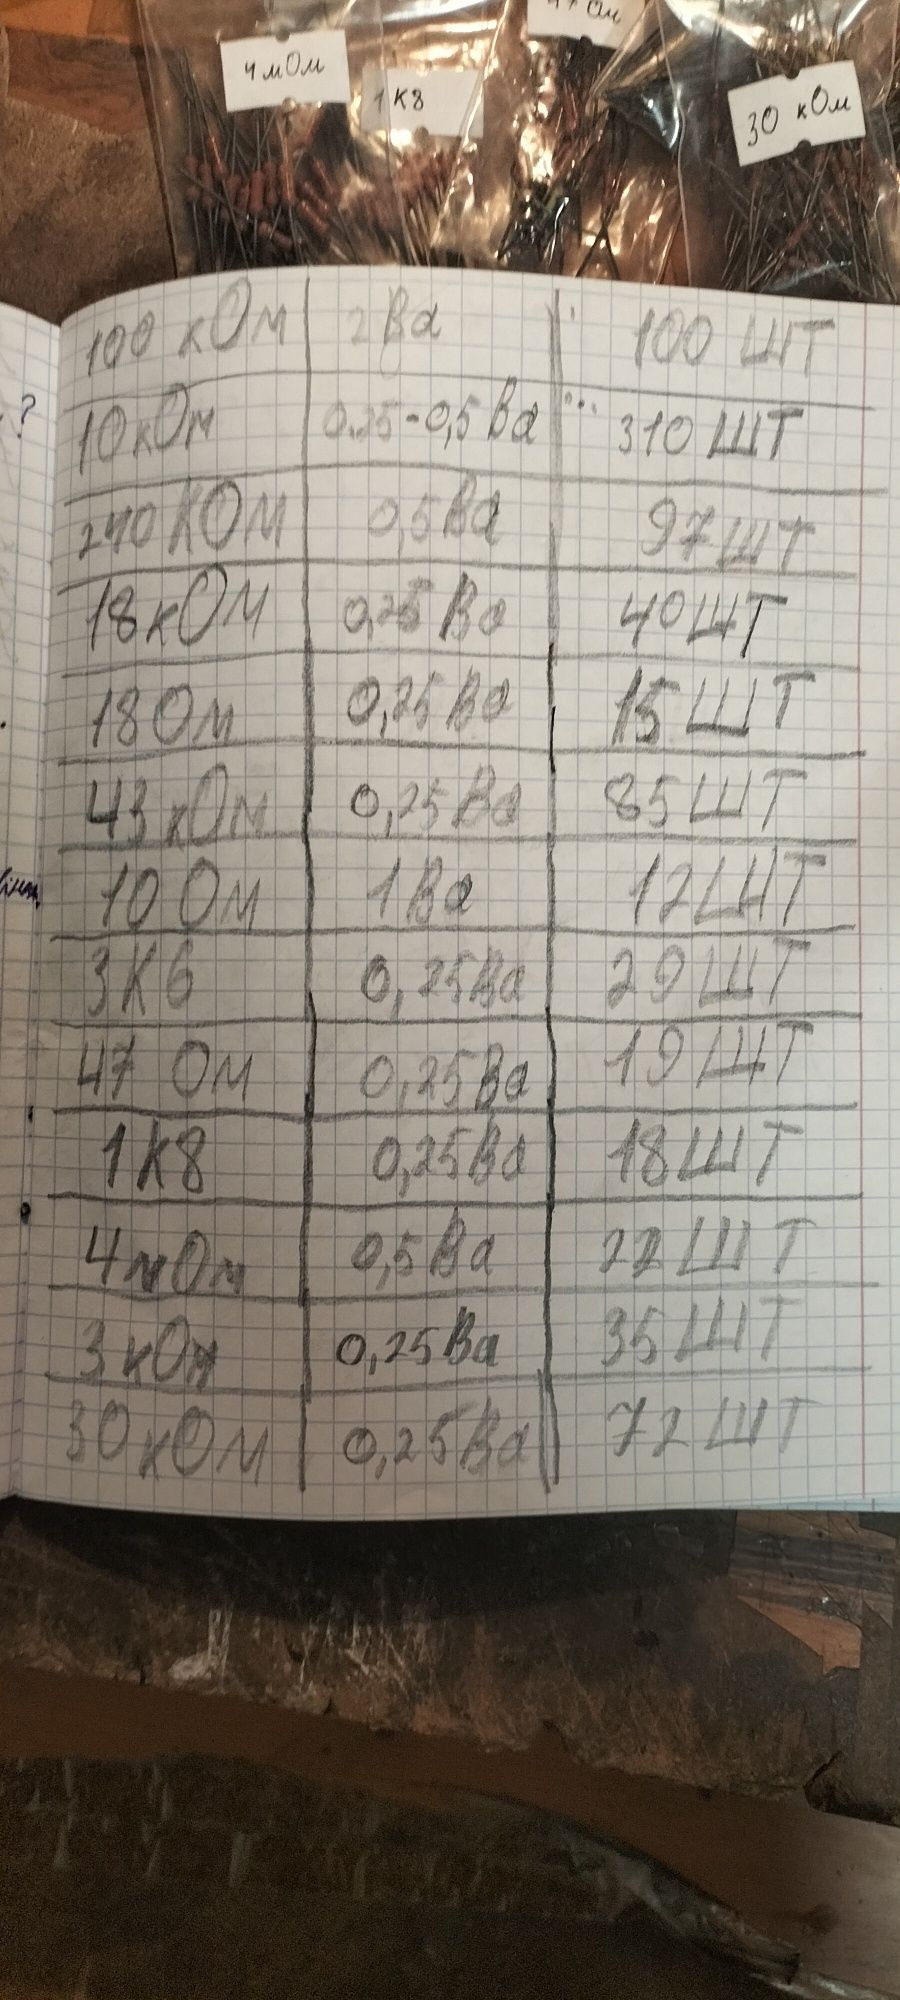 47 Ом
4 мОм
1 К8
30 кОм
100 кОм 2 Ва 100 ШТ
10 кОм 0.25-0,5 Ва 310 ШТ
240 КОМ 0,5 Ва 97 ШТ
18 кОМ 0,25 Ва 40 ШТ
18 Ом 0,25 Ва 15 ШТ
43 кОм 0,25 Ва 85 ШТ
10 Ом 1 Ва 12 ШТ
3К6 0,25 Ва 29 ШТ
47 Ом 0,25 Ва 19 ШТ
1К8 0,25 Ва 18 ШТ
4мОм 0,5 Ва 22 ШТ
3 кОм 0,25 Ва 35 ШТ
30 кОМ 0,25 Ва 72 ШТ
?